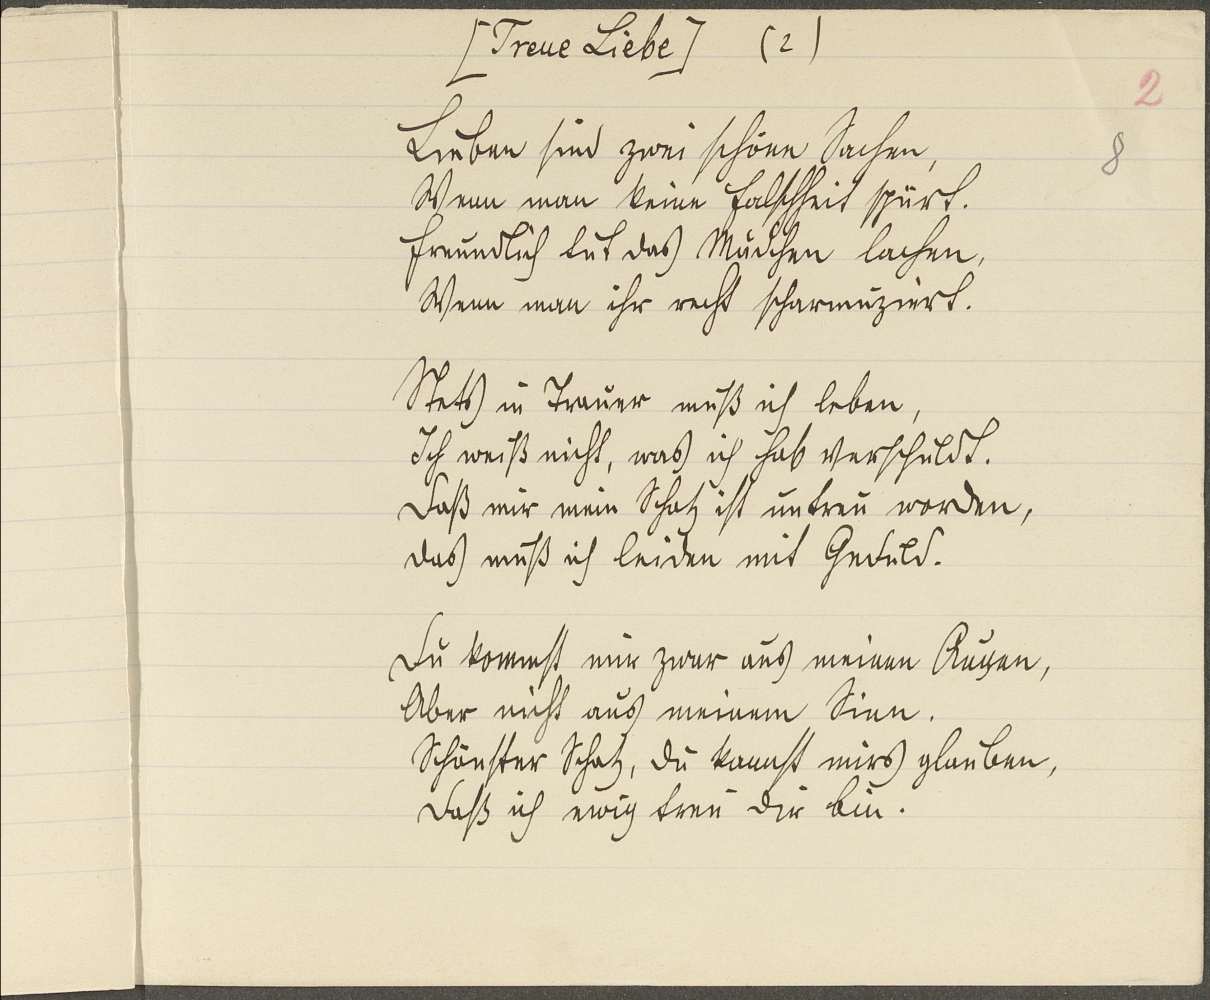 [Treue Liebe] (2)
2
8
Lieben sind zwei schöne Sachen,
Wenn man keine Falschheit spürt.
Freundlich tut das Mädchen lachen,
Wenn man ihr recht scharmuziert.
Stets in Trauer muß ich leben,
Ich weiß nicht, was ich hab verschuldt.
Daß mir mein Schatz ist untreu worden,
das muß ich leiden mit Geduld.
Du kommst mir zwar aus meinen Augen,
Aber nicht aus meinem Sinn.
Schönster Schatz, du kannst mirs glauben,
Daß ich ewig treu dir bin.